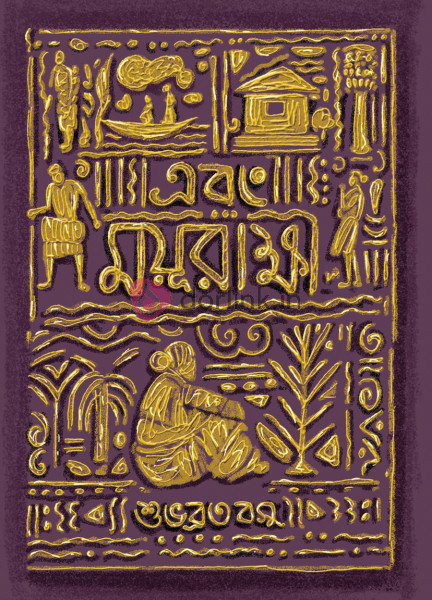 এবং
ময়ূরাক্ষী
শুভব্রত বসু